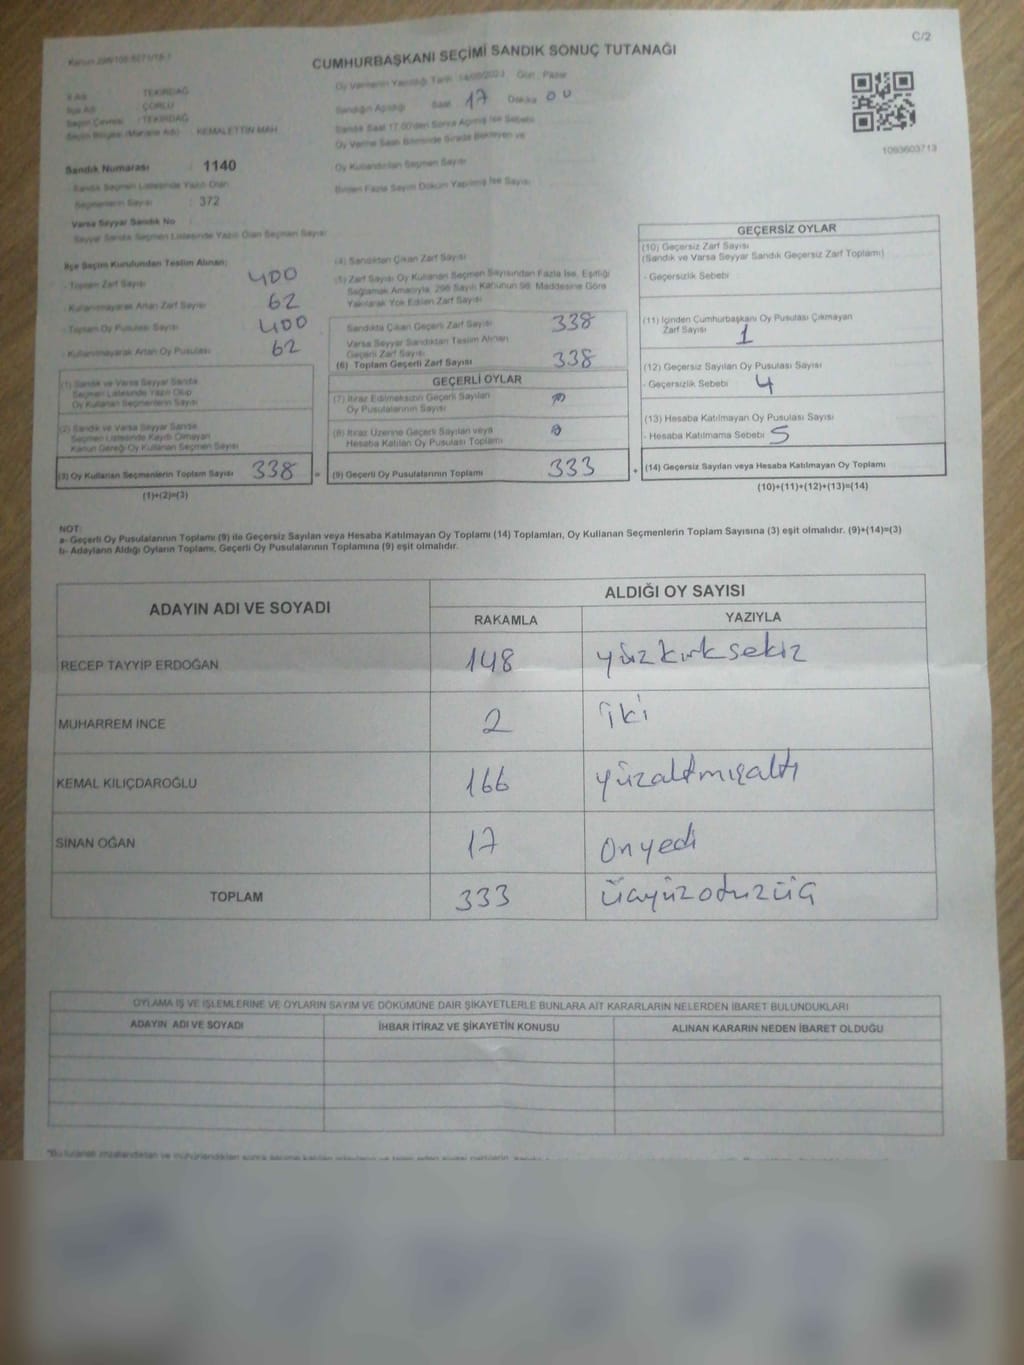 C/2
CUMHURBAŞKANI SEÇİMİ SANDIK SONUÇ TUTANAĞI
Oy Vermenin Yapıldığı Tarih 14/05/2023 Gün : Pazar
Sandığın Açıldığı Saat 17 Dakika 00
Sandık Saat 17.00'den Sonra Açılmış İse Sebebi
Oy Verme Saati Bitiminde Sırada Bekleyen ve
Oy Kullandırılan Seçmen Sayısı
Birden Fazla Sayım Döküm Yapılmış İse Sayısı
İl Adı : TEKİRDAĞ
İlçe Adı : ÇORLU
Seçim Çevresi : TEKİRDAĞ
Seçim Bölgesi (Mahalle Adı) : KEMALETTİN MAH
Sandık Numarası : 1140
Sandık Seçmen Listesinde Yazılı Olan
Seçmenlerin Sayısı : 372
1093603713
Varsa Seyyar Sandık No
Seyyar Sandık Seçmen Listesinde Yazılı Olan Seçmen Sayısı
İlçe Seçim Kurulundan Teslim Alınan;
- Toplam Zarf Sayısı 400
- Kullanılmayarak Artan Zarf Sayısı 62
- Toplam Oy Pusulası Sayısı 400
- Kullanılmayarak Artan Oy Pusulası 62
(1) Sandık ve Varsa Seyyar Sandık
Seçmen Listesinde Yazılı Olup
Oy Kullanan Seçmenlerin Sayısı
(2) Sandık ve Varsa Seyyar Sandık
Seçmen Listesinde Kayıtlı Olmayan
Kanun Gereği Oy Kullanan Seçmen Sayısı
(3) Oy Kullanan Seçmenlerin Toplam Sayısı 338
(1)+(2)=(3)
(4) Sandıktan Çıkan Zarf Sayısı
(5) Zarf Sayısı Oy Kullanan Seçmen Sayısından Fazla İse, Eşitliği
Sağlamak Amacıyla, 298 Sayılı Kanunun 98. Maddesine Göre
Yakılarak Yok Edilen Zarf Sayısı
Sandıkta Çıkan Geçerli Zarf Sayısı 338
Varsa Seyyar Sandıktan Teslim Alınan
Geçerli Zarf Sayısı
(6) Toplam Geçerli Zarf Sayısı 338
GEÇERLİ OYLAR
(7) İtiraz Edilmeksizin Geçerli Sayılan
Oy Pusulalarının Sayısı
(8) İtiraz Üzerine Geçerli Sayılan veya
Hesaba Katılan Oy Pusulası Toplamı
(9) Geçerli Oy Pusulalarının Toplamı 333
GEÇERSİZ OYLAR
(10) Geçersiz Zarf Sayısı
(Sandık ve Varsa Seyyar Sandık Geçersiz Zarf Toplamı)
- Geçersizlik Sebebi
(11) İçinden Cumhurbaşkanı Oy Pusulası Çıkmayan
Zarf Sayısı 1
(12) Geçersiz Sayılan Oy Pusulası Sayısı
- Geçersizlik Sebebi 4
(13) Hesaba Katılmayan Oy Pusulası Sayısı
- Hesaba Katılmama Sebebi 5
(14) Geçersiz Sayılan veya Hesaba Katılmayan Oy Toplamı
(10)+(11)+(12)+(13)=(14)
NOT:
a- Geçerli Oy Pusulalarının Toplamı (9) ile Geçersiz Sayılan veya Hesaba Katılmayan Oy Toplamı (14) Toplamları, Oy Kullanan Seçmenlerin Toplam Sayısına (3) eşit olmalıdır. (9)+(14)=(3)
b- Adayların Aldığı Oyların Toplamı, Geçerli Oy Pusulalarının Toplamına (9) eşit olmalıdır.
ADAYIN ADI VE SOYADI
ALDIĞI OY SAYISI
RAKAMLA YAZIYLA
RECEP TAYYİP ERDOĞAN 148 yüzkırksekiz
MUHARREM İNCE 2 iki
KEMAL KILIÇDAROĞLU 166 yüzaltmışaltı
SİNAN OĞAN 17 Onyedi
TOPLAM 333 üçyüzotuzüç
OYLAMA İŞ VE İŞLEMLERİNE VE OYLARIN SAYIM VE DÖKÜMÜNE DAİR ŞİKAYETLERLE BUNLARA AİT KARARLARIN NELERDEN İBARET BULUNDUKLARI
ADAYIN ADI VE SOYADI İHBAR İTİRAZ VE ŞİKAYETİN KONUSU ALINAN KARARIN NEDEN İBARET OLDUĞU